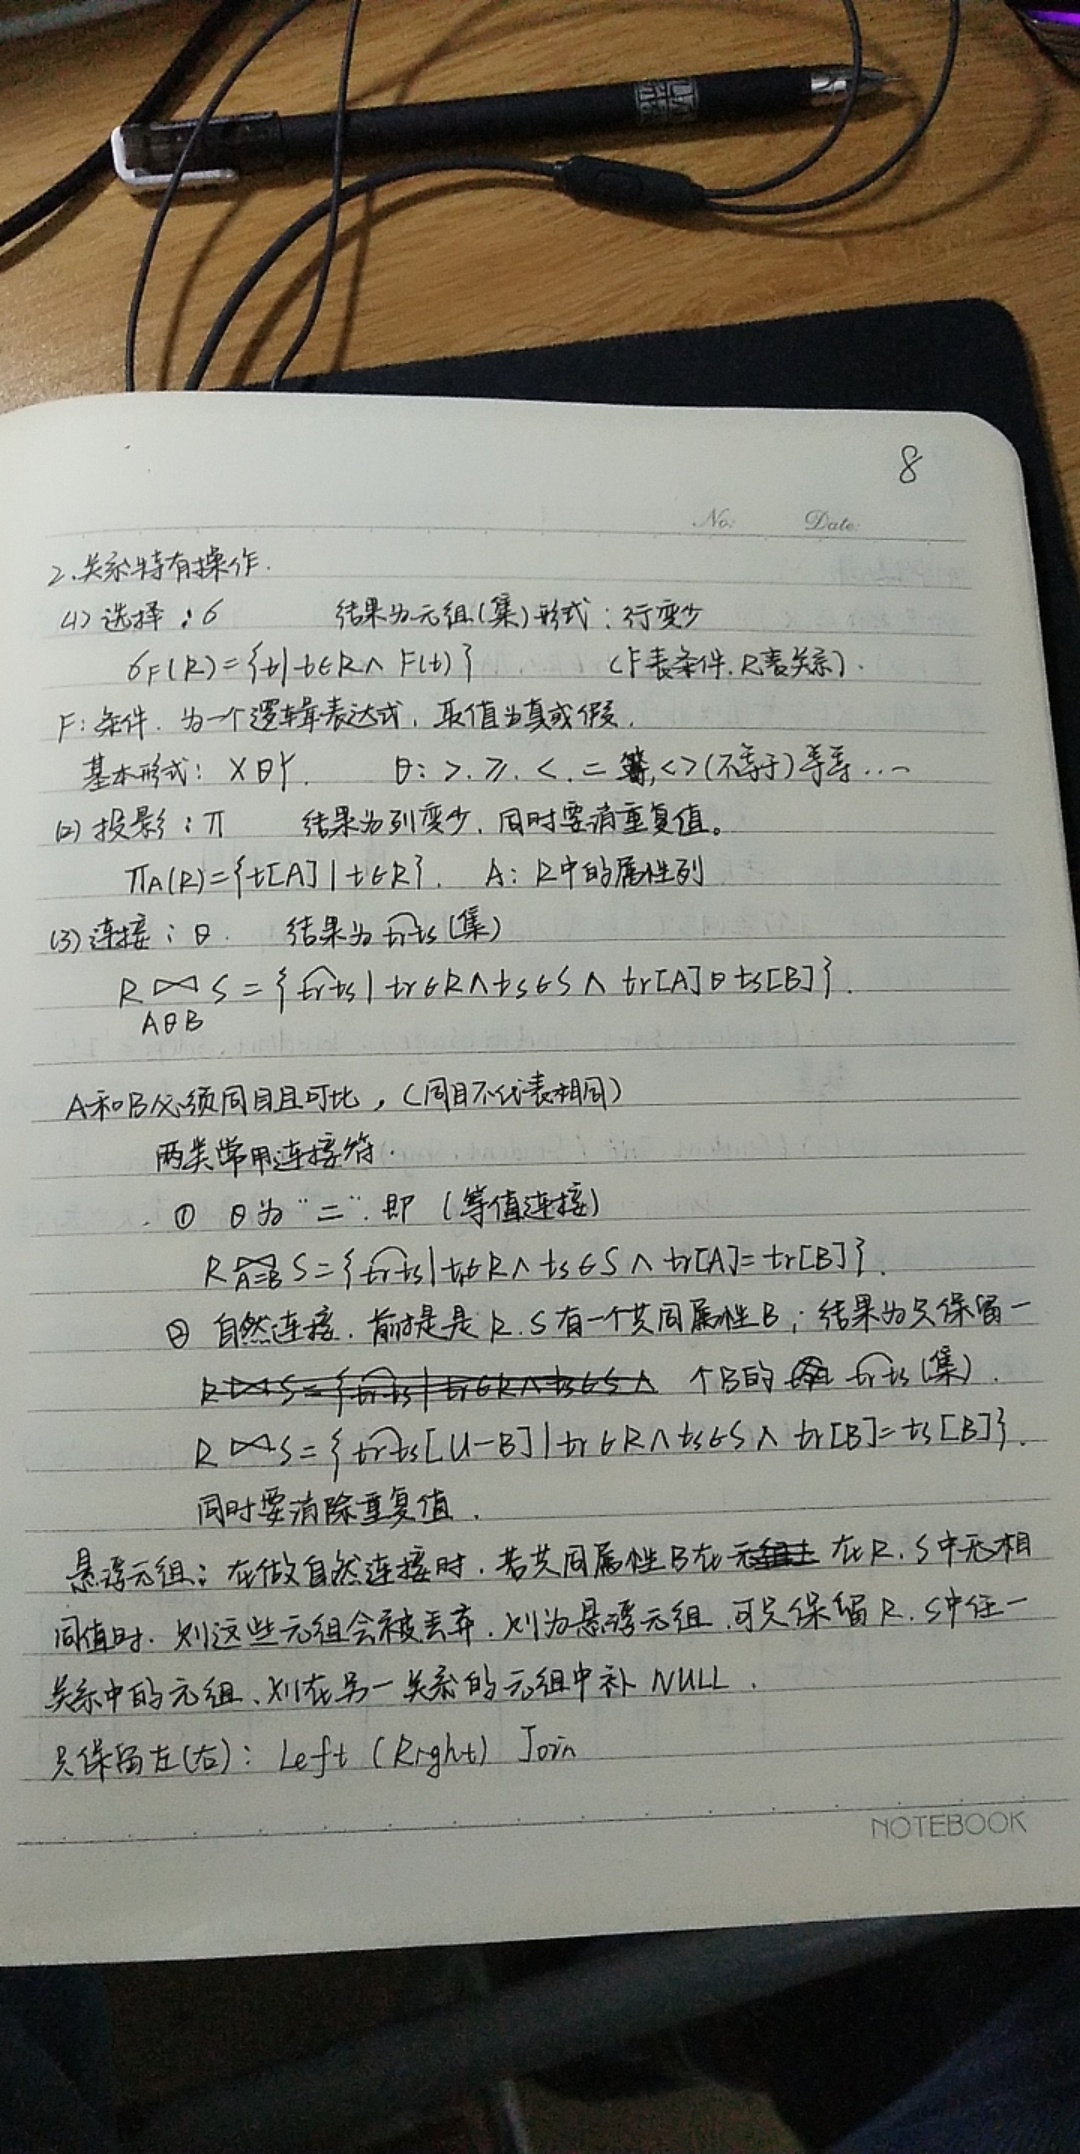 8
No: Date:
2、关系特有操作.
(1) 选择：σ 结果为元组(集)形式：行变少
σF(R)={t|t∈R∧F(t)} (F表条件.R表关系).
F:条件. 为一个逻辑表达式，取值为真或假.
基本形式: XθY. θ: >. ≥. <. = 等,<>(不等于)等等...
(2) 投影：π 结果为列变少.同时要消重复值。
πA(R)={t[A]|t∈R}. A: R中的属性列
(3) 连接：θ. 结果为 t͡rts (集)
R ⋈ S={t͡rts|tr∈R∧ts∈S∧tr[A]θts[B]}.
AθB
A和B必须同目且可比，(同目不代表相同)
两类常用连接符.
① θ为“=”.即 (等值连接)
R ⋈ S={t͡rts|tr∈R∧ts∈S∧tr[A]=tr[B]}.
A=B
② 自然连接. 前提是R.S有一个共同属性B；结果为只保留一
R⋈S={t͡rts|tr∈R∧ts∈S∧ 个B的 t͡rts(集).
R⋈S={t͡rts[U-B]|tr∈R∧ts∈S∧tr[B]=ts[B]}.
同时要消除重复值.
悬浮元组: 在做自然连接时.若共同属性B在元组 在R.S中无相
同值时.则这些元组会被丢弃.则为悬浮元组.可只保留R.S中任一
关系中的元组、则在另一关系的元组中补NULL.
只保留左(右): Left (Right) Join
NOTEBOOK